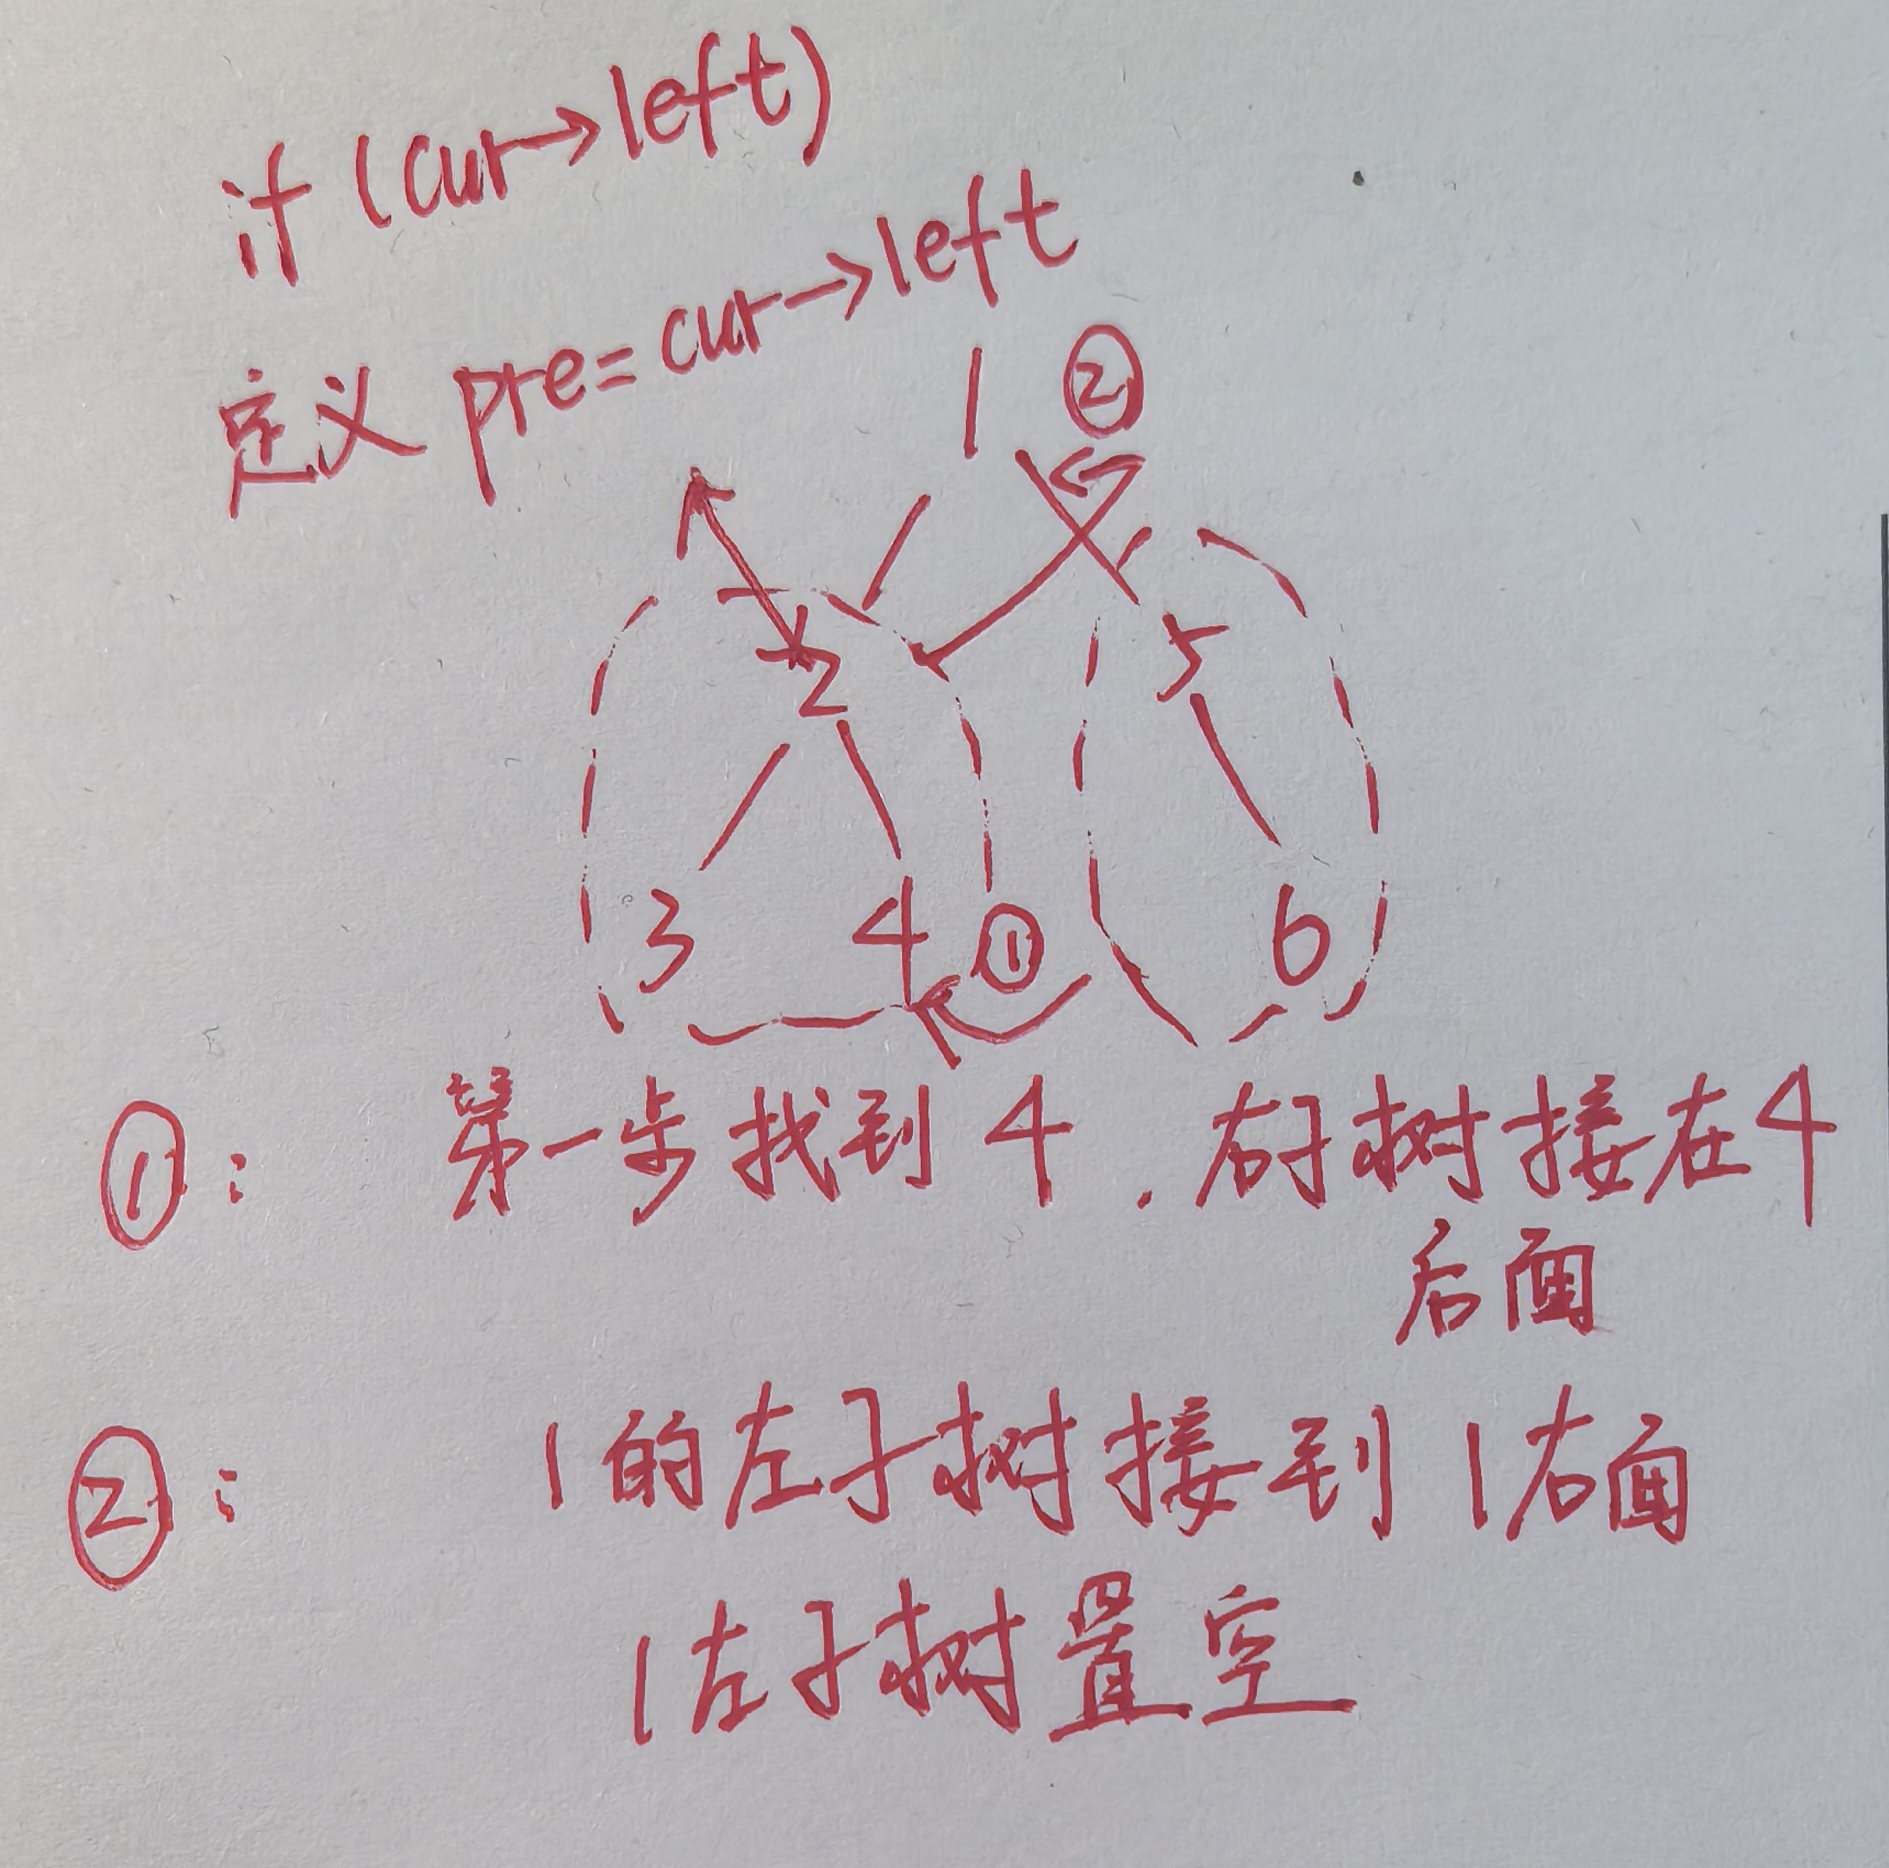 if (cur→left)
定义 pre=cur→left
1 ②
2 5
3 4 ① 6
①: 第一步找到 4 . 右子树接在4
后面
②: 1的左子树接到 1右面
1左子树置空